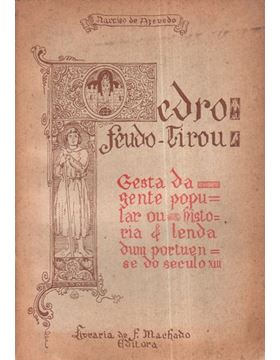 Narciso de Azevedo
Pedro
feudo-Tirou
Gesta da
gente popu-
lar ou histo-
ria & lenda
dum portuen-
se do seculo XIII
Livraria de F. Machado
Editora